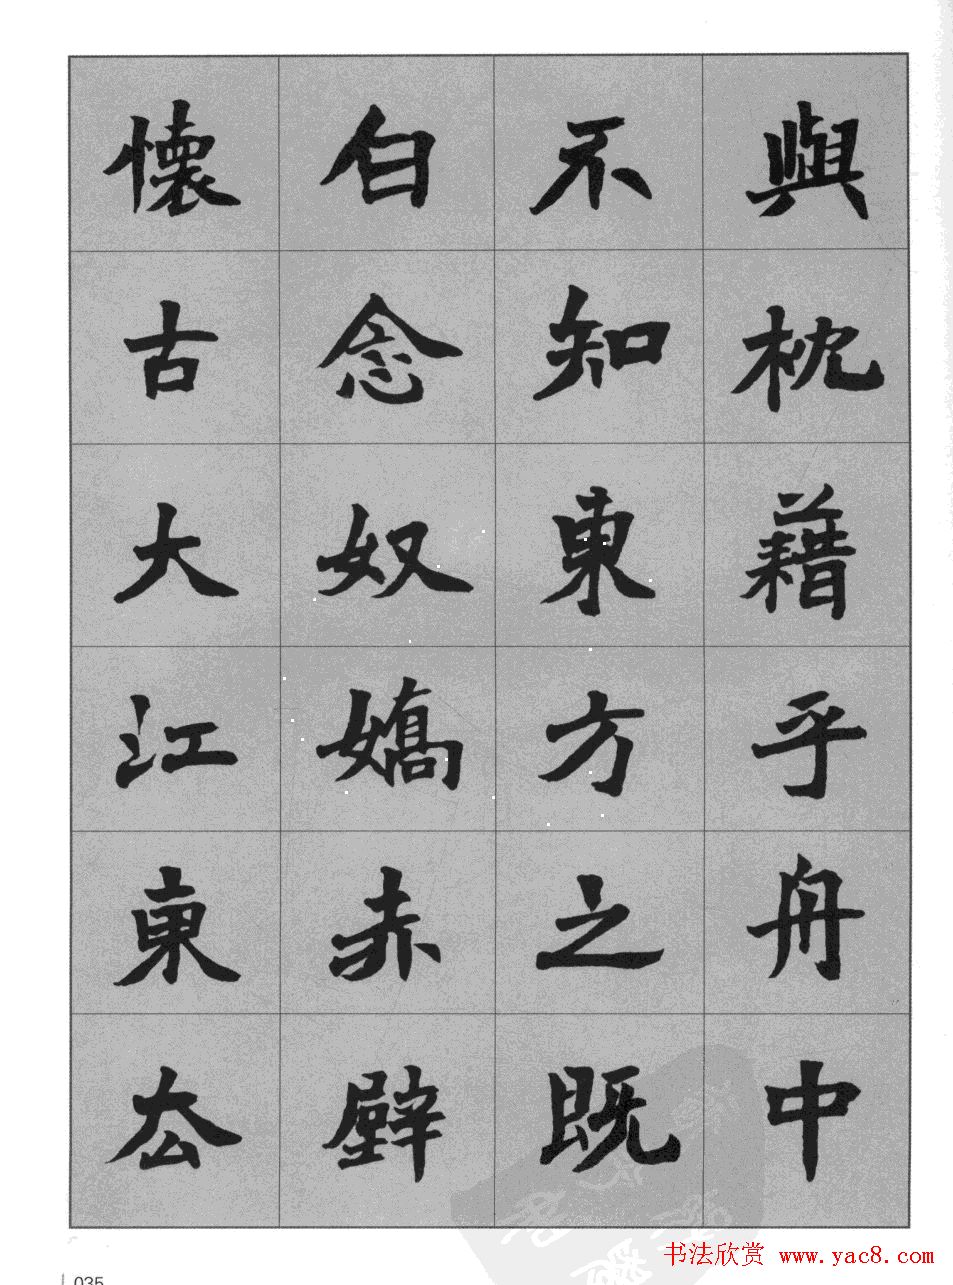 與枕藉乎舟中
不知東方之既
白念奴嬌赤壁
懷古大江東去
書法欣赏 www.yac8.com
035